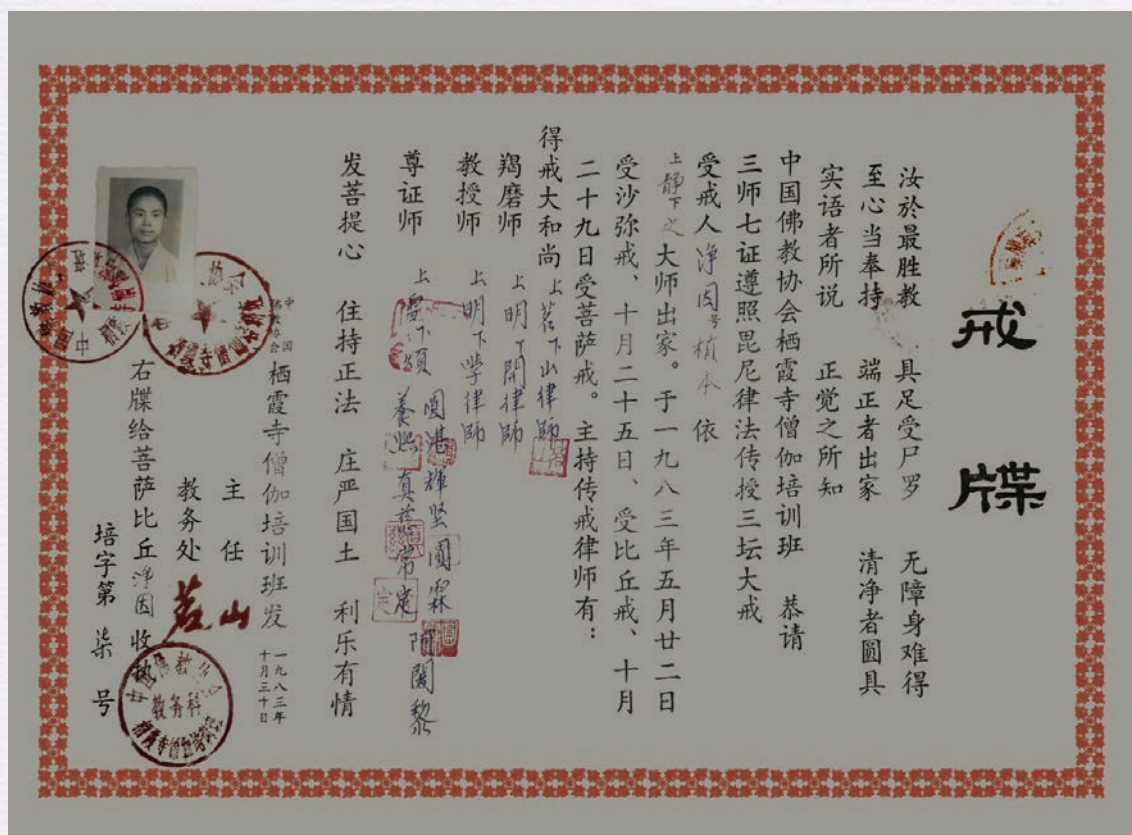 戒牒
汝於最胜教 具足受尸罗 无障身难得
至心当奉持 端正者出家 清净者圆具
实语者所说 正觉之所知
中国佛教协会栖霞寺僧伽培训班 恭请
三师七证遵照毘尼律法传授三坛大戒
受戒人净因号植本 依
上静下之大师出家。于一九八三年五月廿二日
受沙弥戒、十月二十五日、受比丘戒、十月
二十九日受菩萨戒。主持传戒律师有：
得戒大和尚 上茗下山律師
羯磨师 上明下開律師
教授师 上明下学律師
尊证师 上雪下頌 圓湛 辉坚 圓霖 養照 真慈 常定 阿闍黎
发菩提心 住持正法 庄严国土 利乐有情
中国佛教协会栖霞寺僧伽培训班发 一九八三年十月三十日
主任 茗山
教务处
右牒给菩萨比丘净因收执
培字第柒号
教务科